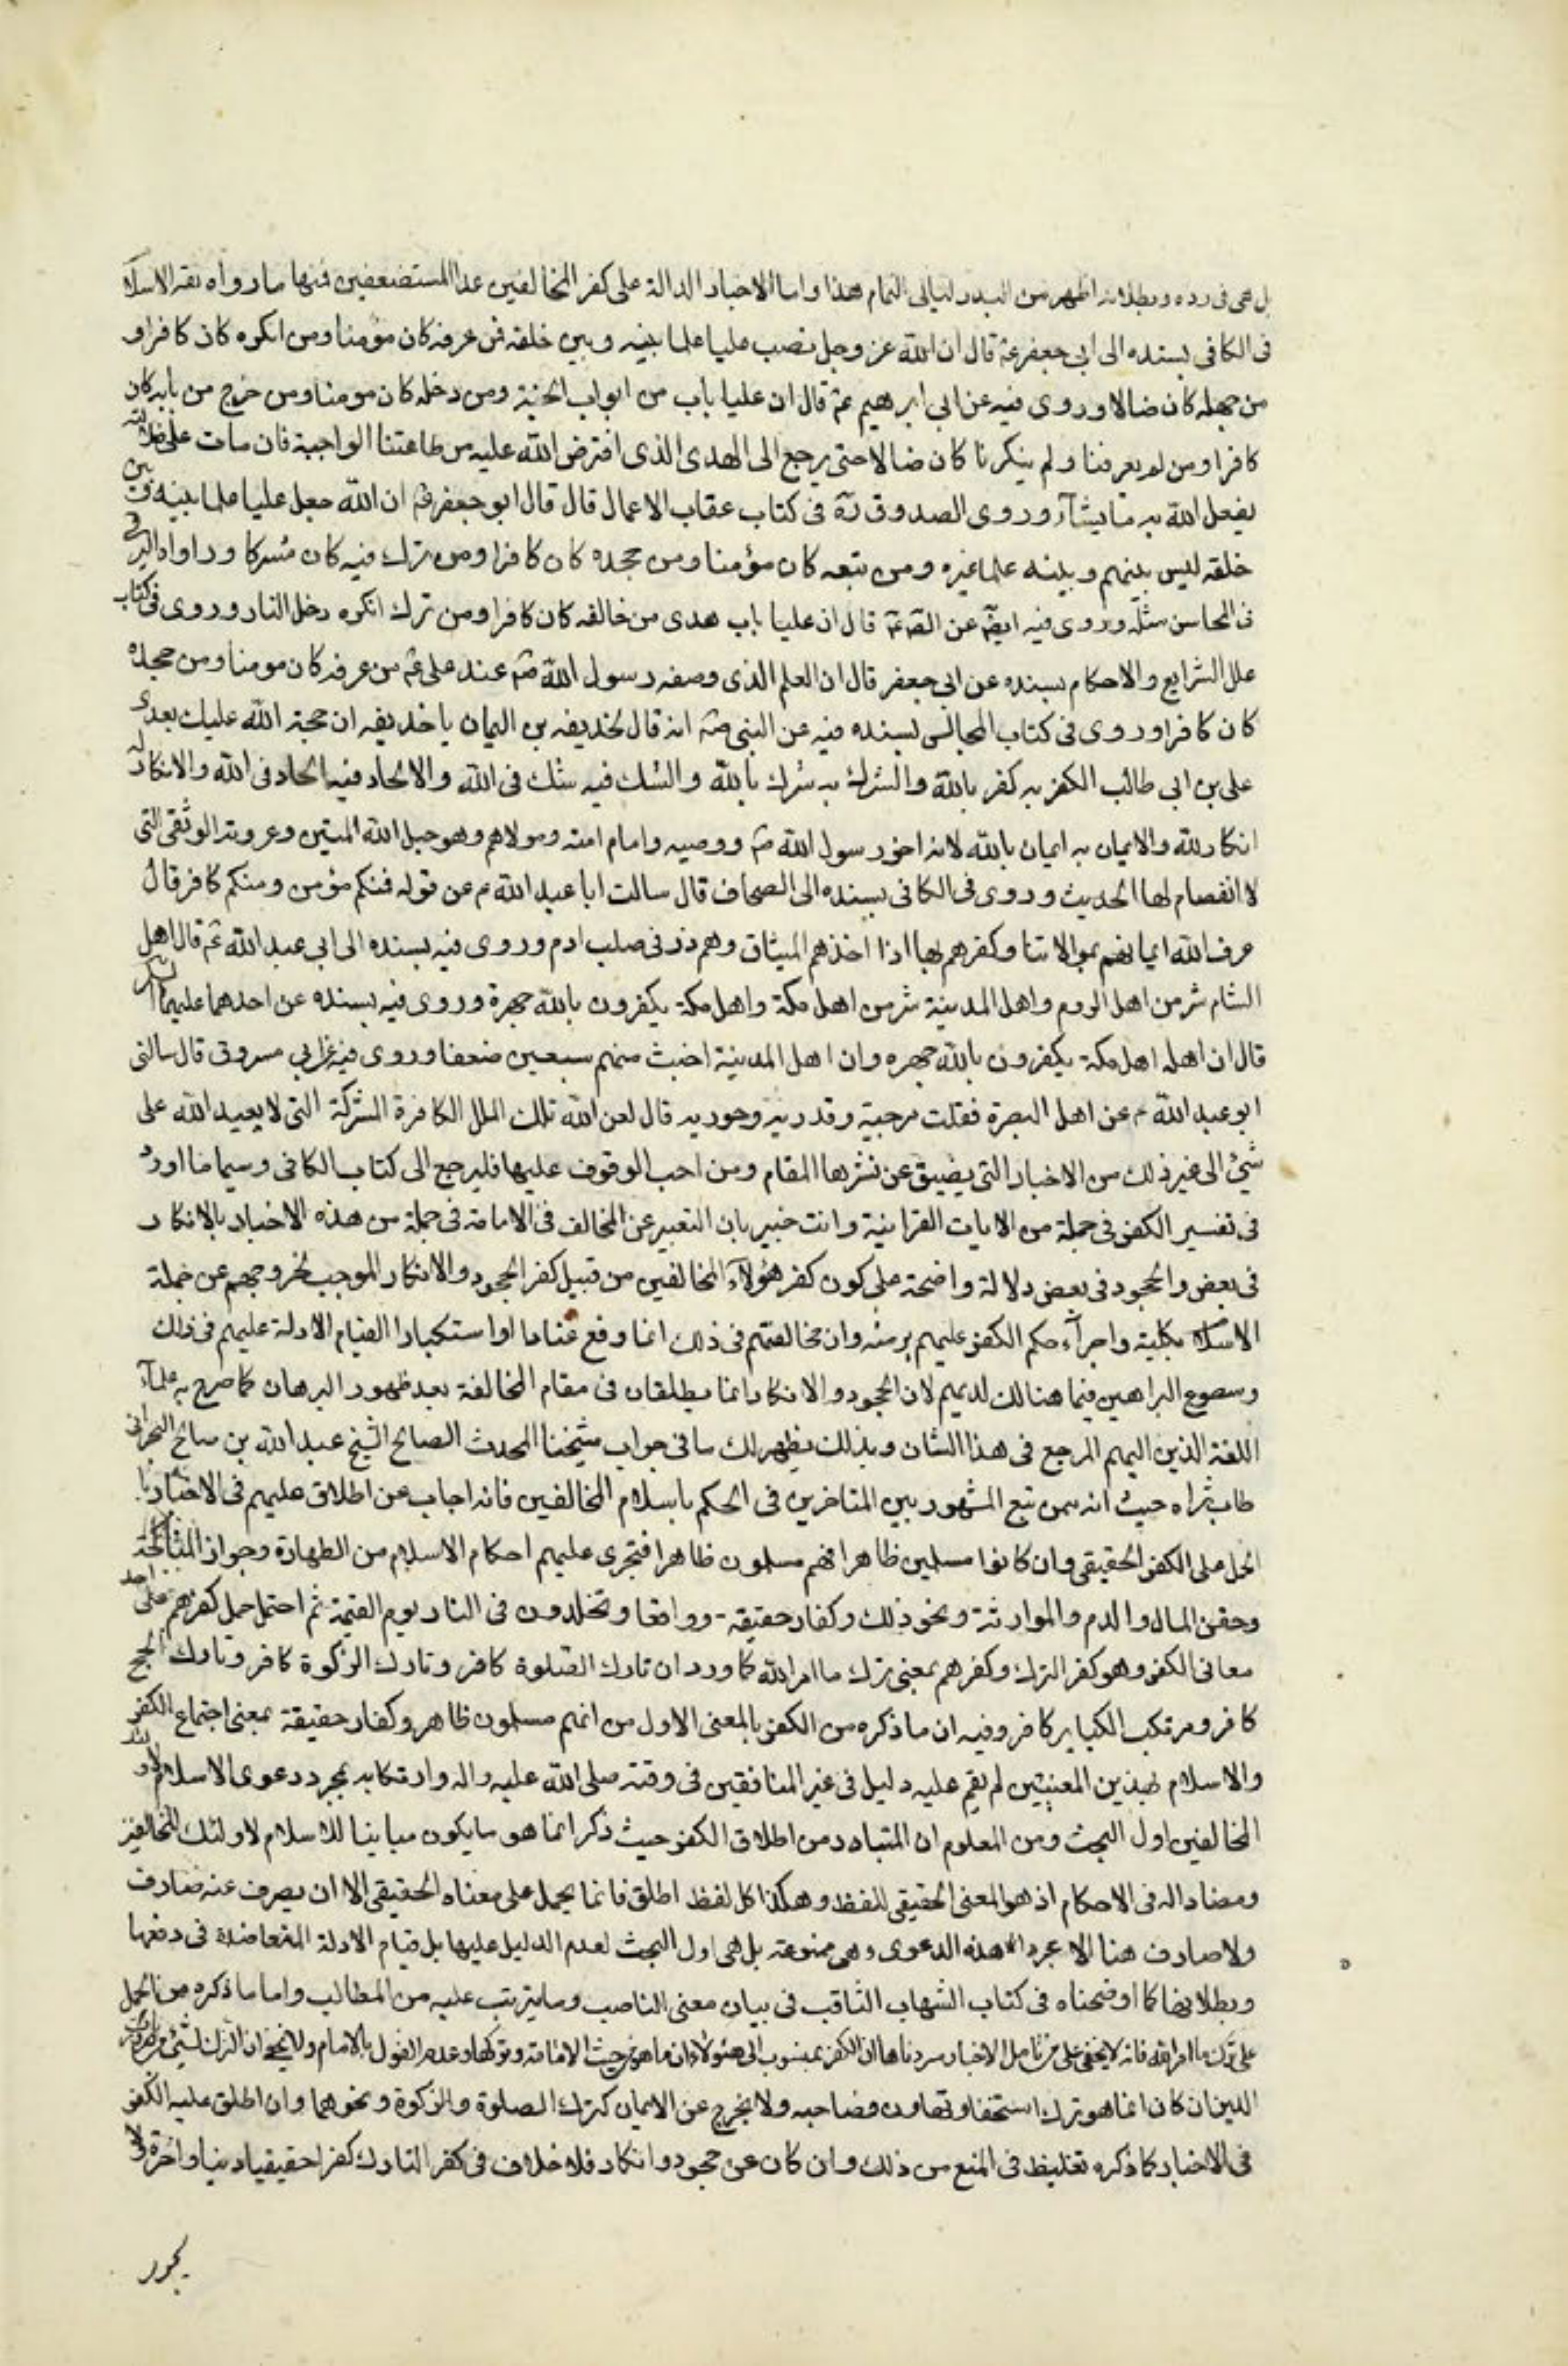 بل هي في رده وبطلانه اظهر من البدر ليالي التمام هذا واما الاخبار الدالة على كفر المخالفين عدا المستضعفين فمنها ما رواه ثقة الاسلام
في الكافي بسنده الى ابي جعفر ع قال ان الله عز وجل نصب عليا علما بينه وبين خلقه فمن عرفه كان مؤمنا ومن انكره كان كافرا و
من جهله كان ضالا وروى فيه عن ابي ابرهيم ع قال ان عليا باب من ابواب الجنة ومن دخله كان مومنا ومن خرج من بابه كان
كافرا ومن لم يعرفنا ولم ينكرنا كان ضالا حتى يرجع الى الهدى الذي افترض الله عليه من طاعتنا الواجبة فان مات على ضلالته
يفعل الله به ما يشآء وروى الصدوق ره في كتاب عقاب الاعمال قال قال ابو جعفر ع ان الله جعل عليا علما بينه وبين
خلقه ليس بينهم وبينه علما غيره ومن تبعه كان مؤمنا ومن جحده كان كافرا ومن ترك فيه كان مشركا ورواه البرقي
في المحاسن مثله وروى فيه ايضا عن الصم ع قال ان عليا باب هدى من خالفه كان كافرا ومن ترك انكره دخل النار وروى في كتاب
علل الشرايع والاحكام بسنده عن ابي جعفر قال ان العلم الذي وصفه رسول الله ص عند علي ع من عرفه كان مومنا ومن جحده
كان كافرا وروى في كتاب المجالس بسنده فيه عن النبي ص انه قال لحذيفه بن اليمان يا حذيفه ان حجة الله عليك بعدي
علي بن ابي طالب الكفر به كفر بالله والشرك به شرك بالله والشك فيه شك في الله والالحاد فيه الحاد في الله والانكار له
انكار لله والايمان به ايمان بالله لانه اخو رسول الله ص ووصيه وامام امته ومولاهم وهو حبل الله المتين وعروته الوثقى التي
لا انفصام لها الحديث وروى في الكافي بسنده الى الصحاف قال سالت ابا عبد الله ع عن قوله فمنكم مؤمن ومنكم كافر قال
عرف الله ايمانهم بموالاتنا وكفرهم بها اذا اخذهم الميثاق وهم ذر في صلب ادم وروى فيه بسنده الى ابي عبد الله ع قال اهل
الشام شر من اهل الروم واهل المدينة شر من اهل مكة واهل مكة يكفرون بالله جهرة وروى فيه بسنده عن احدهما عليهما السلم
قال ان اهله اهل مكة يكفرون بالله جهره وان اهل المدينة اخبث منهم سبعين ضعفا وروى فيه عن ابي مسروق قال سالني
ابو عبد الله ع عن اهل البصرة فقلت مرجية وقدرية وحورية قال لعن الله تلك الملل الكافرة المشركة التي لا يعبد الله على
شيئ الى غير ذلك من الاخبار التي يضيق عن نشرها المقام ومن احب الوقوف عليها فليرجع الى كتاب الكافي وسيما ما اورد
في تفسير الكفر في جملة من الايات القرانية وانت خبير بان التعبير عن المخالف في الامامة في جملة من هذه الاخبار بالانكار
في بعض والجحود في بعض دلالة واضحة على كون كفر هؤلآء المخالفين من قبيل كفر الجحود والانكار الموجب لخروجهم عن جملة
الاسلام بكلية واجرآء حكم الكفر عليهم برمته وان مخالفتهم في ذلك انما وقع عنادا او استكبارا القيام الادلة عليهم في ذلك
وسطوع البراهين فيما هنالك لديهم لان الجحود والانكار انما يطلقان في مقام المخالفة بعد ظهور البرهان كما صرح به علمآء
اللغة الذين اليهم المرجع في هذا الشان وبذلك يظهر لك ما في جواب شيخنا المحدث الصالح الشيخ عبد الله بن صالح البحراني
طاب ثراه حيث انه ممن تبع المشهور بين المتاخرين في الحكم باسلام المخالفين فانه اجاب عن اطلاق عليهم في الاخبار با
الحمل على الكفر الحقيقي وان كانوا مسلمين ظاهرا فهم مسلمون ظاهرا فتجرى عليهم احكام الاسلام من الطهارة وجواز المناكحة
وحقن المال والدم والموارثة ونحو ذلك وكفار حقيقة وواقعا ومخلدون في النار يوم القيمة ثم احتمل حمل كفرهم على احد
معاني الكفر وهو كفر الترك وكفرهم بمعنى ترك ما امر الله كما ورد ان تارك الصلوة كافر وتارك الزكوة كافر وتارك الحج
كافر ومرتكب الكباير كافر وفيه ان ما ذكره من الكفر بالمعنى الاول من انهم مسلمون ظاهر وكفار حقيقة بمعنى اجتماع الكفر
والاسلام بهذين المعنيين لم يقم عليه دليل في غير المنافقين في وقته صلى الله عليه واله وارتكابه بمجرد دعوى الاسلام لاولئك
المخالفين اول البحث ومن المعلوم ان المتبادر من اطلاق الكفر حيث ذكر انما هو ما يكون مباينا للاسلام لاولئك المخالفين
ومضادا له في الاحكام اذ هو المعنى الحقيقي للفظ وهكذا كل لفظ اطلق فانما يحمل على معناه الحقيقي الا ان يصرف عنه صارف
ولا صارف هنا الا مجرد هذه الدعوى وهي ممنوعة بل هي اول البحث لعدم الدليل عليها بل قيام الادلة المتعاضدة في دفعها
وبطلانها كما اوضحناه في كتاب الشهاب الثاقب في بيان معنى الناصب وما يترتب عليه من المطالب واما ما ذكره من الحمل
على ترك ما امر الله فانه لا يخفى على من تامل الاخبار سردناها ان الكفر بمنسوب الى هئولاء ان ما هو من حيث الامامة وتركها وعدم القول بالامام ولا يخفى ان الترك لشيئ من ضروريات
الدين ان كان انما هو ترك استخفاف وتهاون فصاحبه ولا يخرج عن الايمان كترك الصلوة والزكوة ونحوهما وان اطلق عليه الكفر
في الاخبار كما ذكره تغليظ في المنع من ذلك وان كان عن جحود وانكار فلا خلاف في كفر التارك كفرا حقيقيا دينا واخرة ولا
يجوز